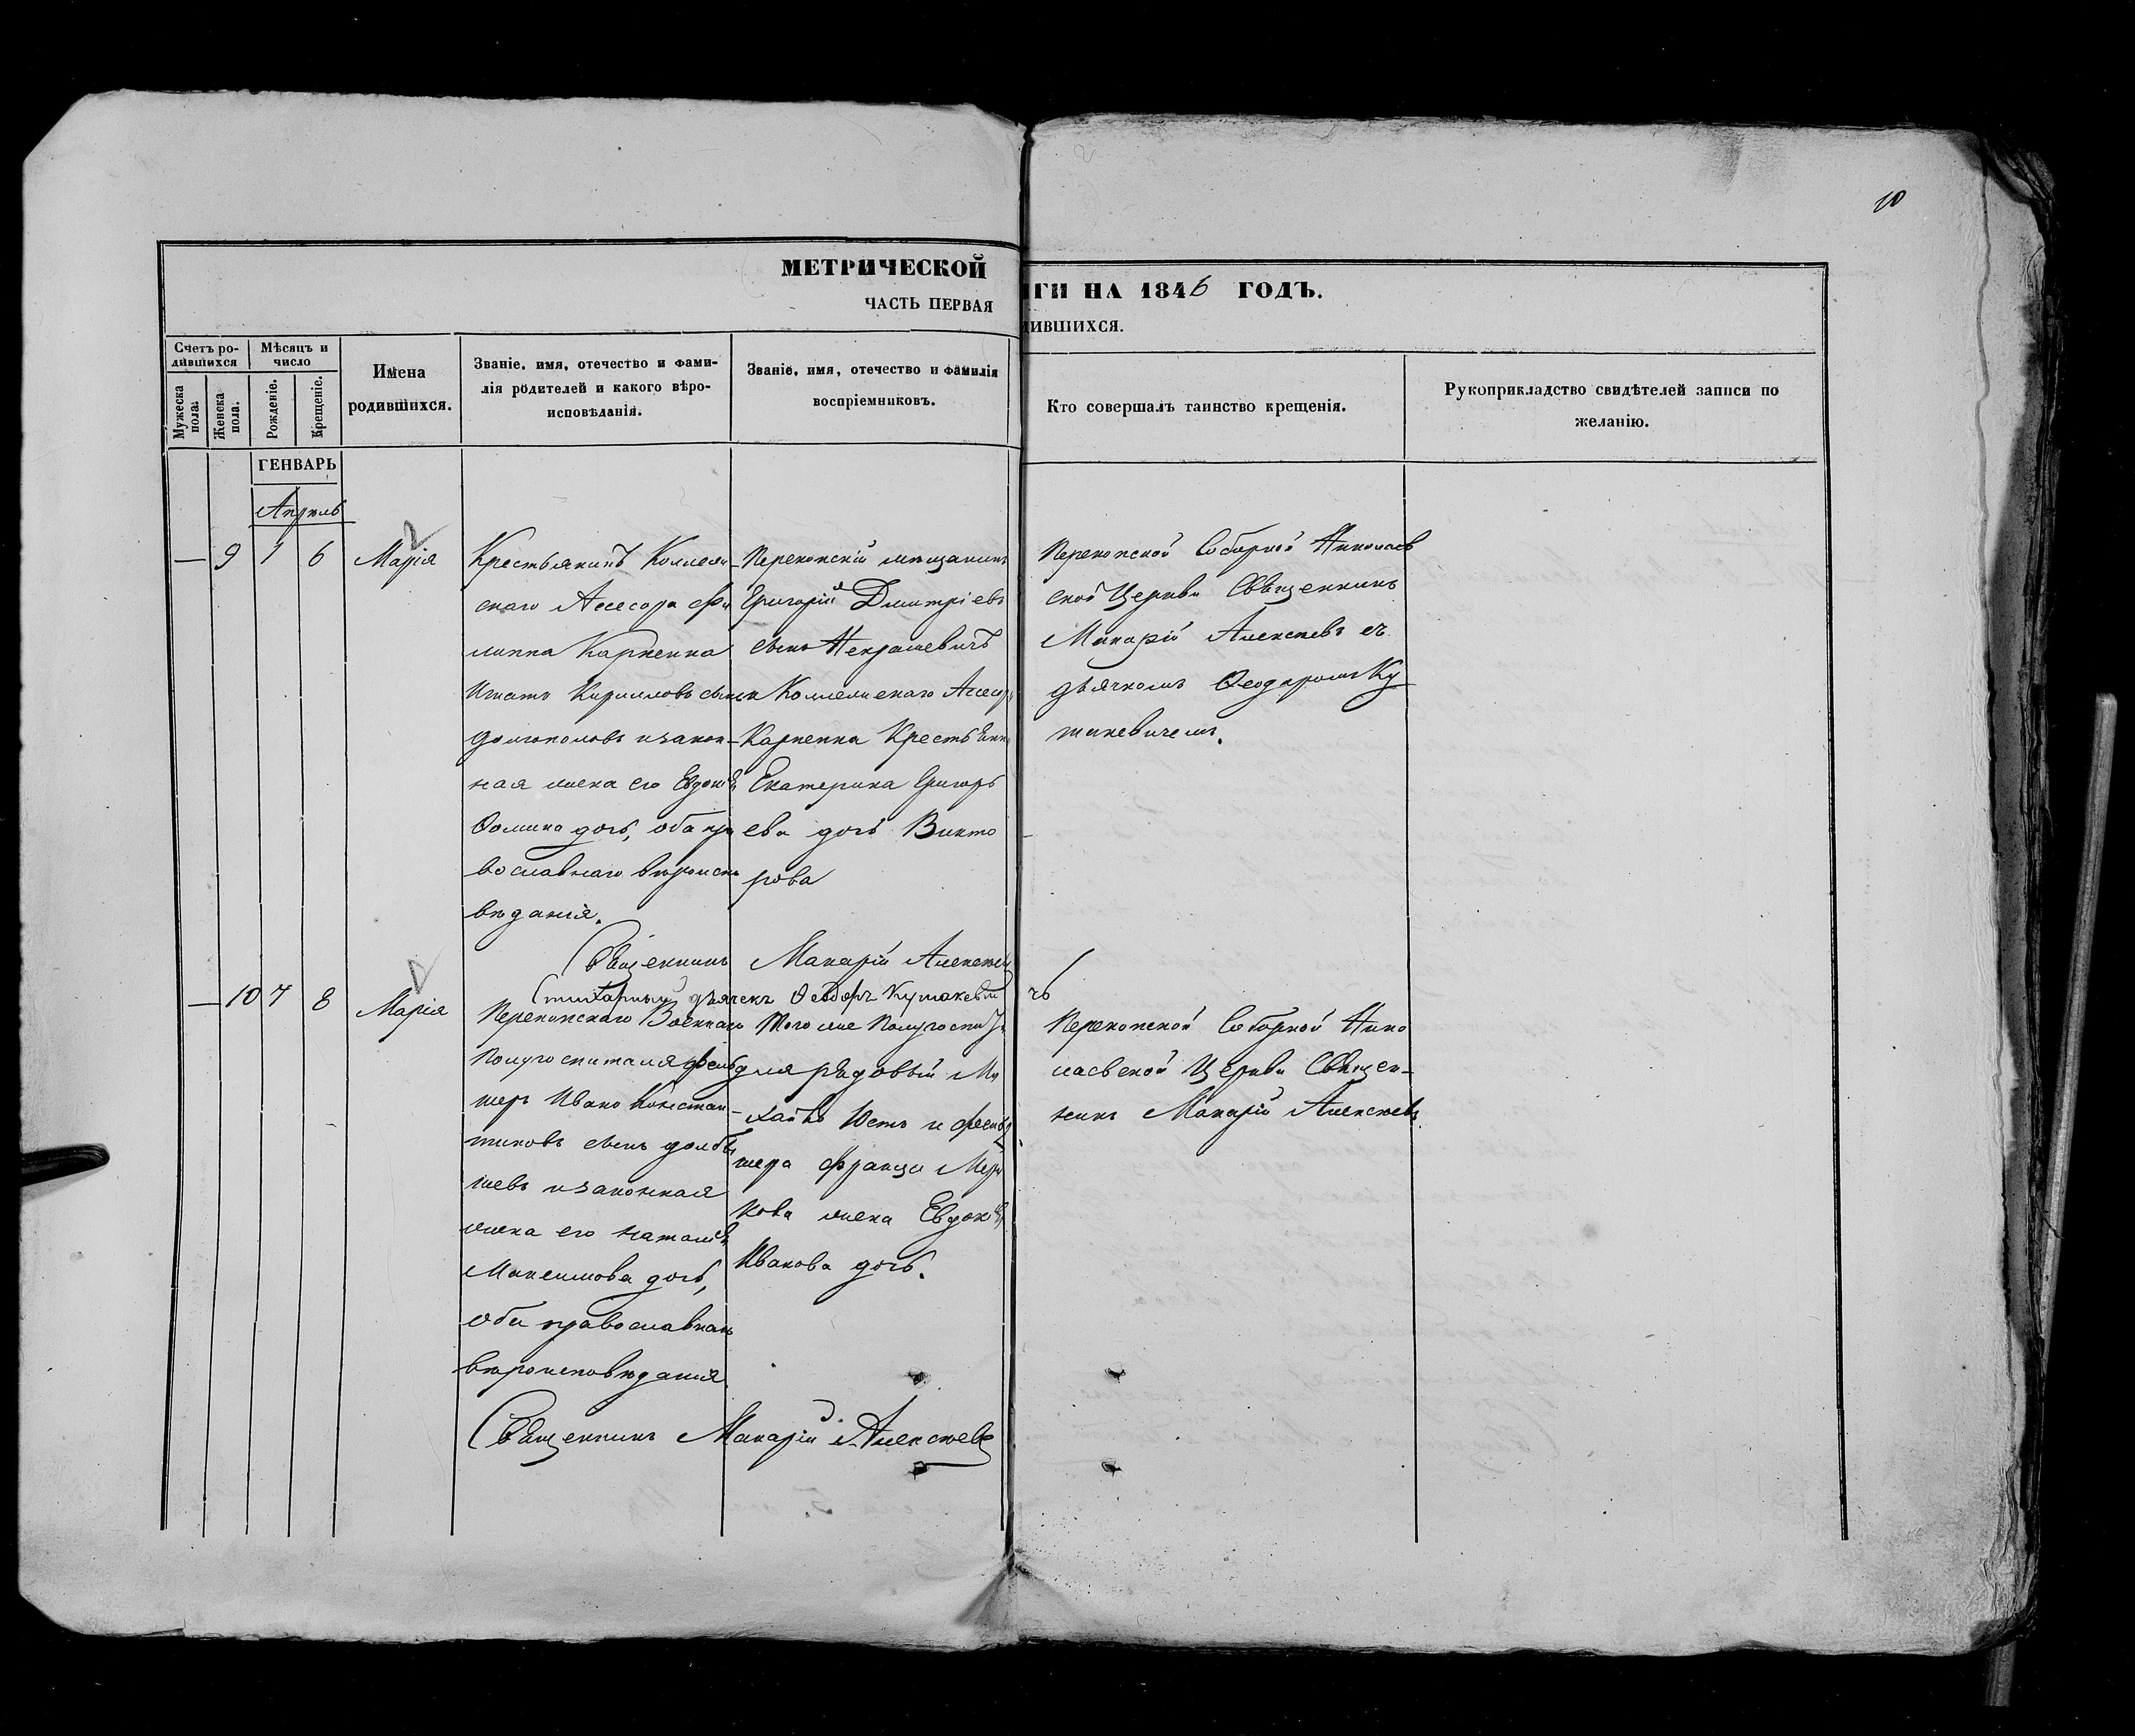 10
МЕТРИЧЕСКОЙ
ГИ НА 1846 ГОДЪ.
ЧАСТЬ ПЕРВАЯ
ДИВШИХСЯ.
Счетъ ро-
дившихся
Мужеска
пола.
Женска
пола.
Мѣсяцъ и
число
Рожденіе.
Крещеніе.
Имена
родившихся.
Званіе, имя, отечество и фами-
лія родителей и какого вѣро-
исповѣданія.
Званіе, имя, отечество и фамилія
воспріемниковъ.
Кто совершалъ таинство крещенія.
Рукоприкладство свидѣтелей записи по
желанію.
ГЕНВАРЬ
Апрель
— 9 1 6
Марія
Крестьянинъ Коллеж-
скаго Ассесора Фи
липпа Карпенка
Игнатъ Кирилловъ сынъ
Долгополовъ и закон-
ная жена его Евдокія
Ѳомина дочь, оба пра
вославнаго вѣроиспо
вѣданія.
Перекопскій мѣщанинъ
Григорій Дмитріевъ
сынъ Некрашевичъ
и Коллежскаго Ассесора
Карпенка Крестьянка
Екатерина Григорь
ева дочь Викто
рова
Перекопской Соборной Николаев
ской Церкви Священникъ
Макарій Алексѣевъ съ
дьячкомъ Ѳеодоромъ Ку
ткевичемъ.
Священникъ Макарій Алексѣевъ
дьячекъ Ѳеодоръ
чъ
— 10 7 8
Марія
Перекопскаго Военнаго
Полугоспиталя Фельд
шеръ Иванъ Констан-
тиновъ сынъ
и законная
жена его Наталія
Максимова дочь,
оба православнаго
вѣроисповѣданія
Того же Полугоспита
ля рядовый Ми
хайла и Фельд
шера Франца
кова жена Евдокія
Иванова дочь.
Перекопской Соборной Нико
лаевской Церкви Священ-
никъ Макарій Алексѣевъ.
Священникъ Макарій Алексѣевъ